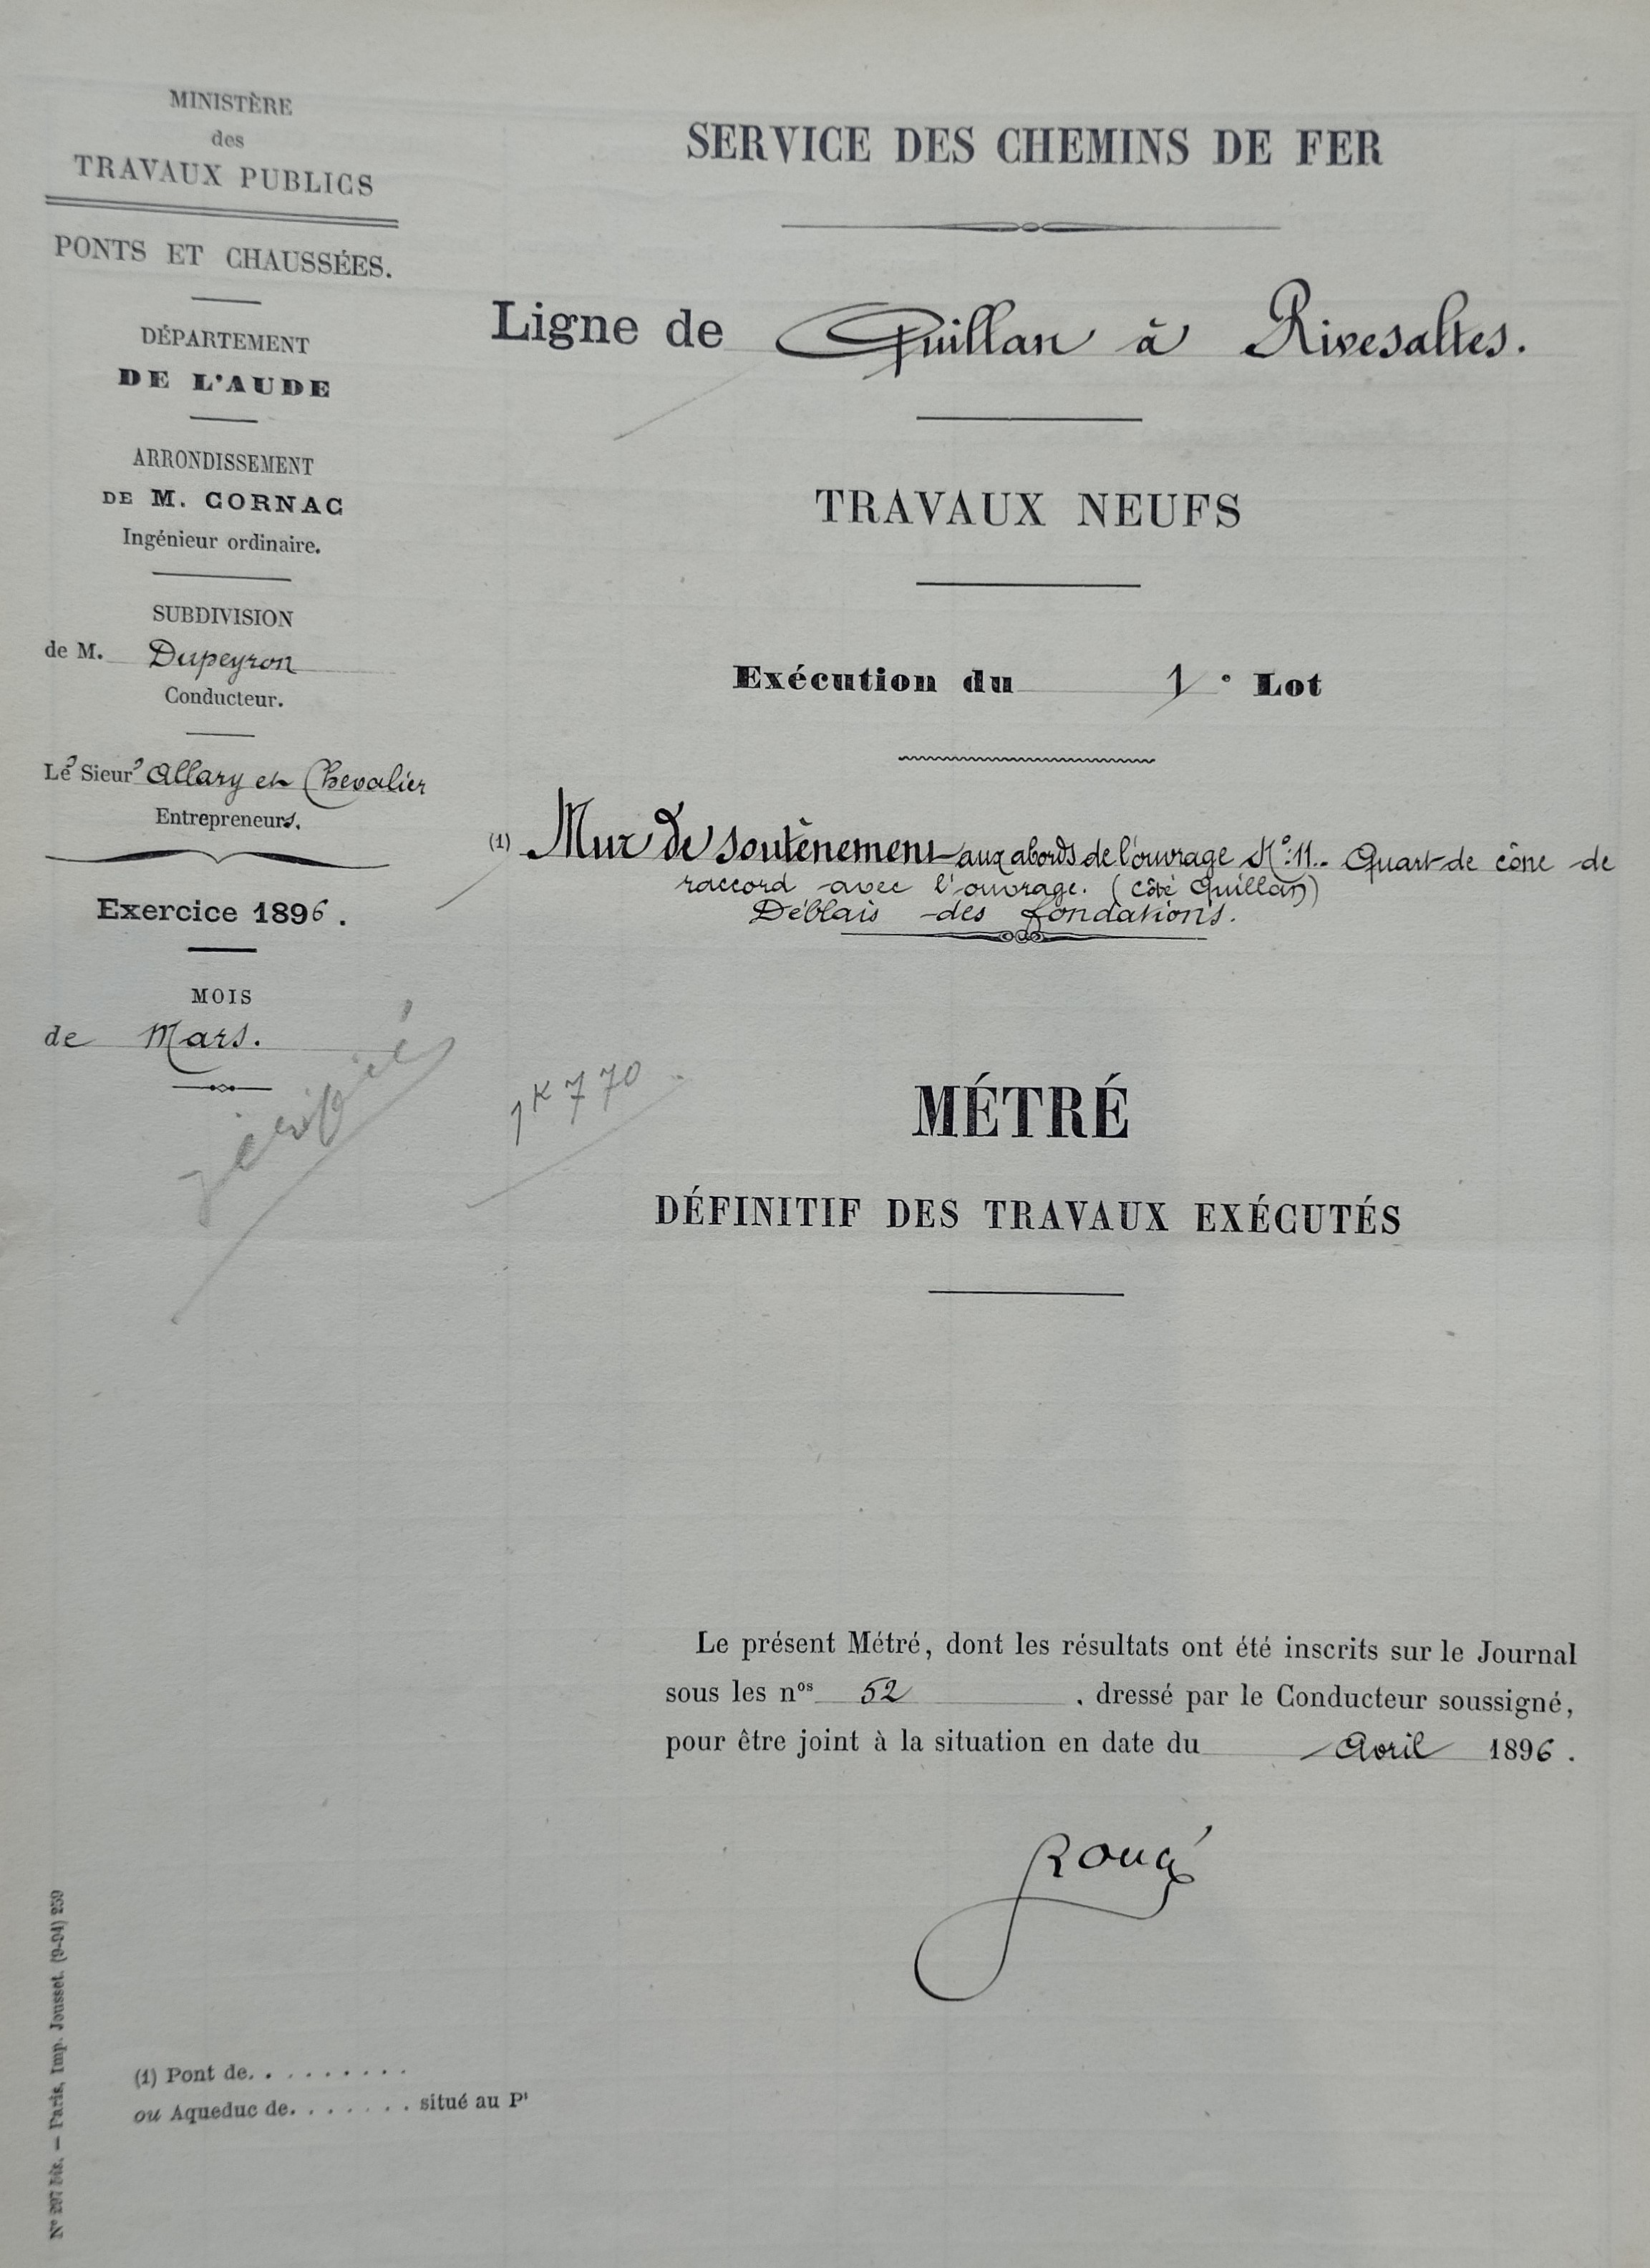 MINISTÈRE
des
TRAVAUX PUBLICS
PONTS ET CHAUSSÉES.
DÉPARTEMENT
DE L'AUDE
ARRONDISSEMENT
DE M. CORNAC
Ingénieur ordinaire.
SUBDIVISION
de M. Dupeyron
Conducteur.
Les Sieurs Allary et Chevalier
Entrepreneurs.
Exercice 1896.
MOIS
de Mars.
vérifié
SERVICE DES CHEMINS DE FER
Ligne de Quillan à Rivesaltes.
TRAVAUX NEUFS
Exécution du 1e Lot
(1) Mur de soutènement aux abords de l'ouvrage No: 11.. Quart de cône de
raccord avec l'ouvrage. (Côté Quillan)
Déblais des fondations.
1K 770
MÉTRÉ
DÉFINITIF DES TRAVAUX EXÉCUTÉS
Le présent Métré, dont les résultats ont été inscrits sur le Journal
sous les nos 52, dressé par le Conducteur soussigné,
pour être joint à la situation en date du Avril 1896.
(1) Pont de. . . . . . . . . .
ou Aqueduc de. . . . . . . . situé au Pt
No 297 bis. — Paris, Imp. Jousset. (9-94) 259